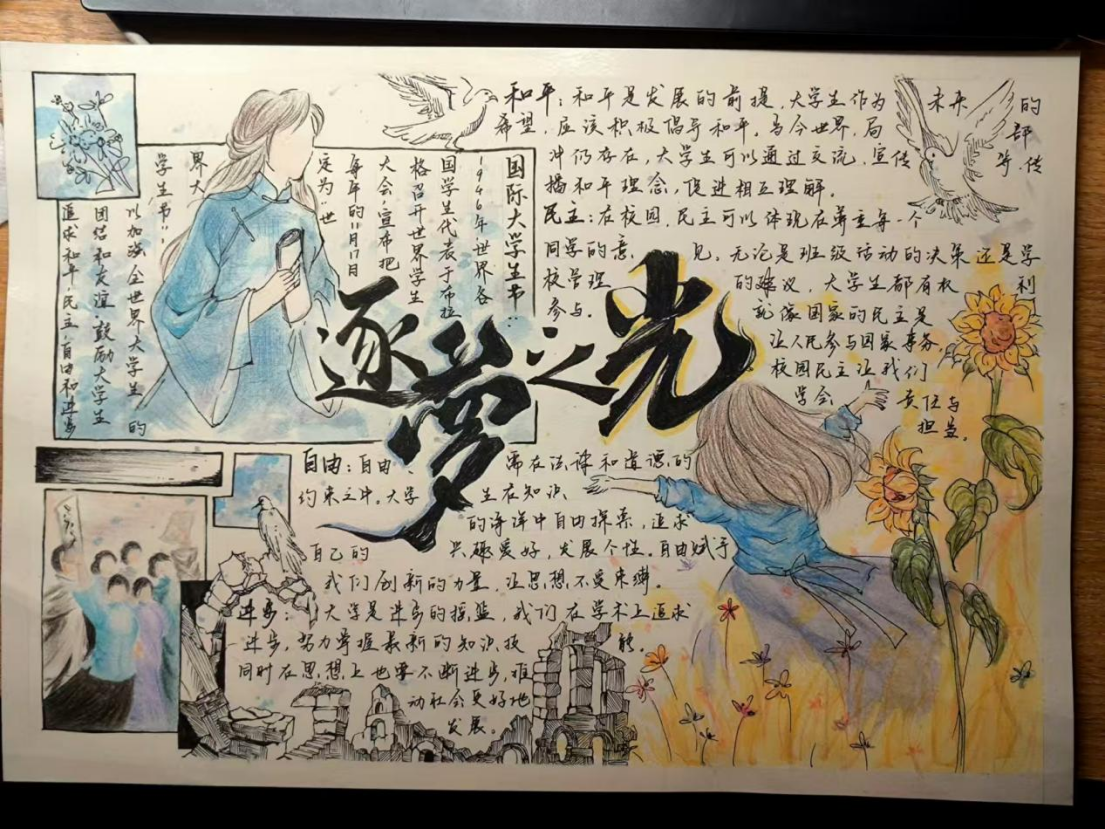 逐梦之光
国际大学生节：
1946年世界各
国学生代表于布拉
格召开世界学生
大会，宣布把
每年的11月17日
定为“世
界大
学生节”，
以加强全世界大学生的
团结和友谊，鼓励大学生
追求和平，民主，自由和进步
和平：和平是发展的前提，大学生作为未来的
希望，应该积极倡导和平。当今世界，局部
冲仍存在，大学生可以通过交流，宣传等，传
播和平理念，促进相互理解。
民主：在校园，民主可以体现在尊重每一个
同学的意见，无论是班级活动的决策还是学
校管理的建议，大学生都有权利
参与。就像国家的民主是
让人民参与国家事务，
校园民主让我们
学会责任与
担当。
自由：自由需在法律和道德的
约束之中。大学生在知识
的海洋中自由探索，追求
自己的兴趣爱好，发展个性。自由赋予
我们创新的力量，让思想不受束缚。
进步：大学是进步的摇篮，我们在学术上追求
进步，努力掌握最新的知识技能，
同时在思想上也要不断进步，推
动社会更好地
发展。